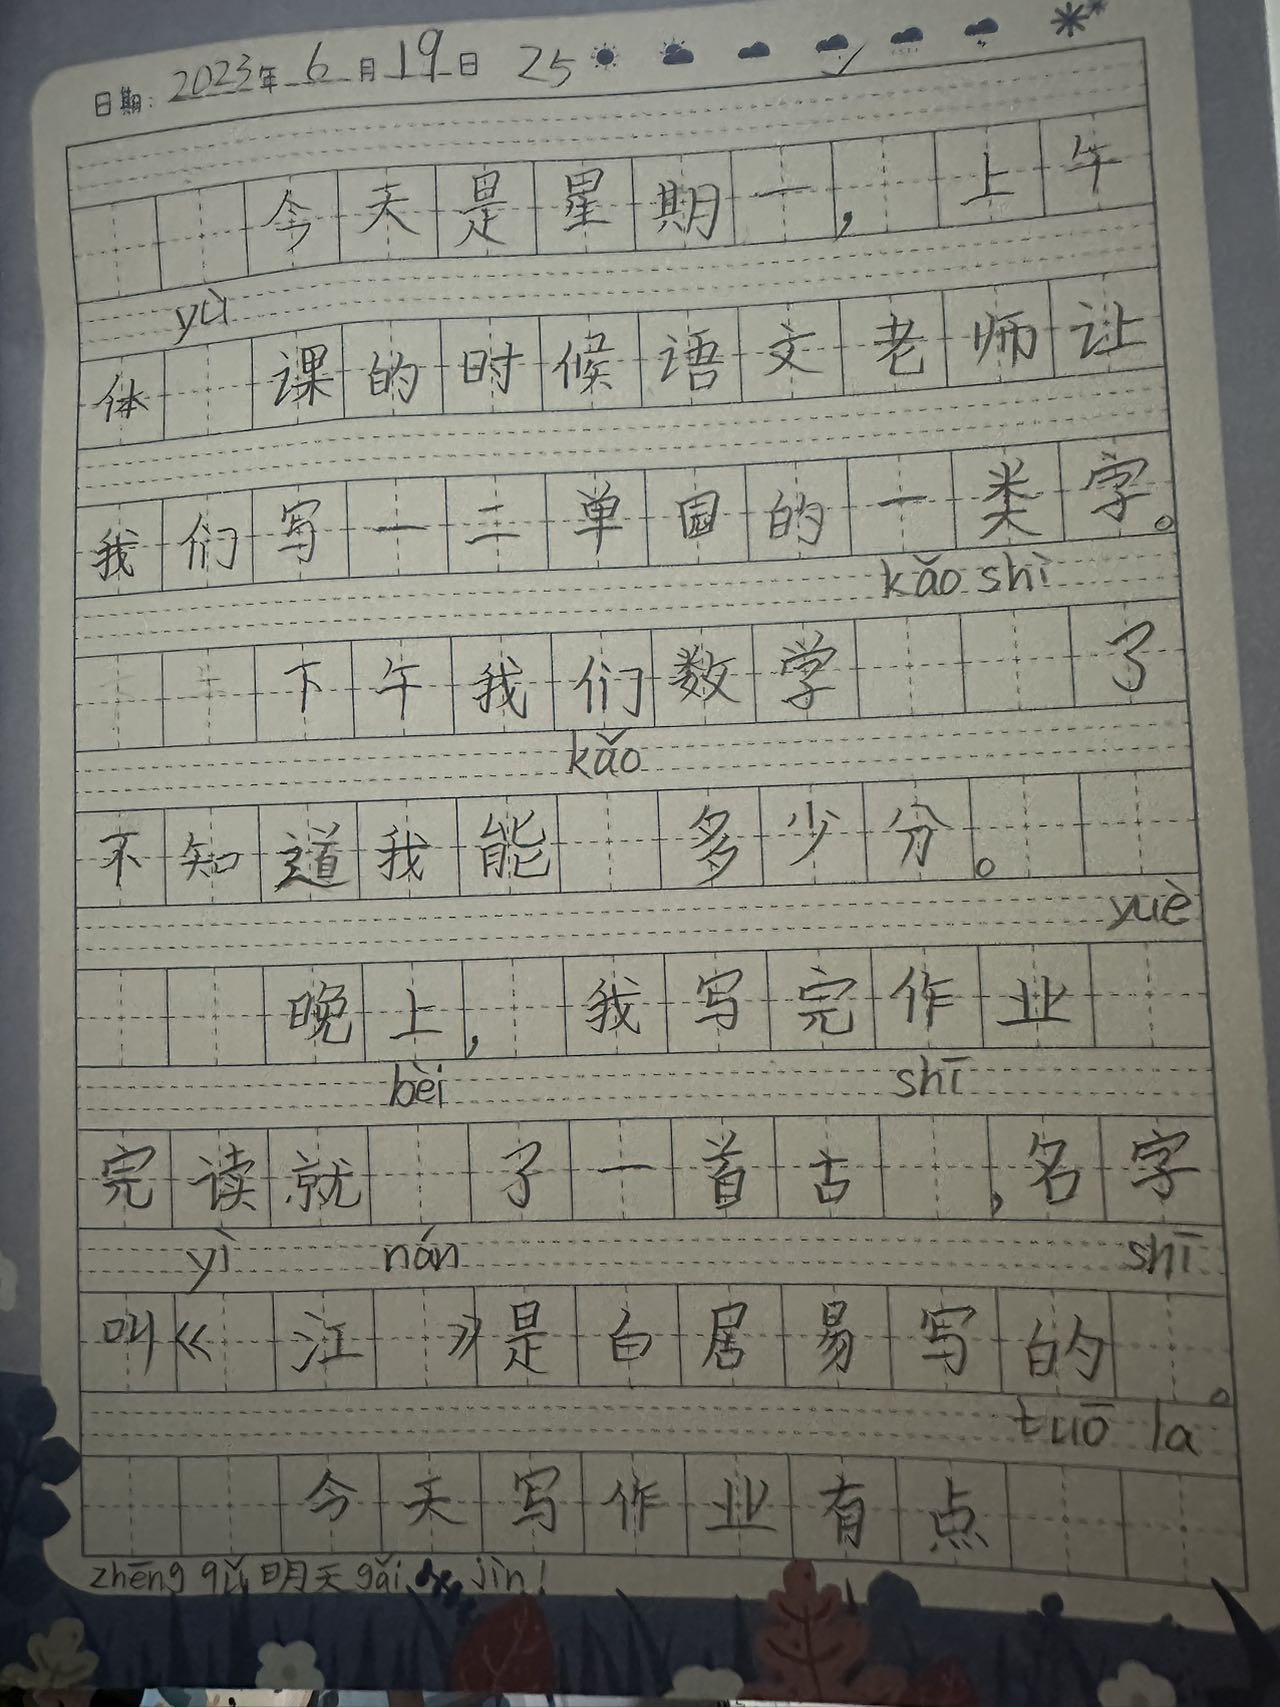 日期: 2023年 6 月 19 日 25
今天是星期一, 上午
yù
体 课的时候语文老师让
我们写一二单园的一类字。
kǎo shì
下午我们数学 了
kǎo
不知道我能 多少分。
yuè
晚上, 我写完作业
bèi shī
完读就 了一首古 ,名字
yì nán shī
叫《 江 》是白居易写的 。
tuō la
今天写作业有点
zhēng qǔ 明天 gǎi jìn!